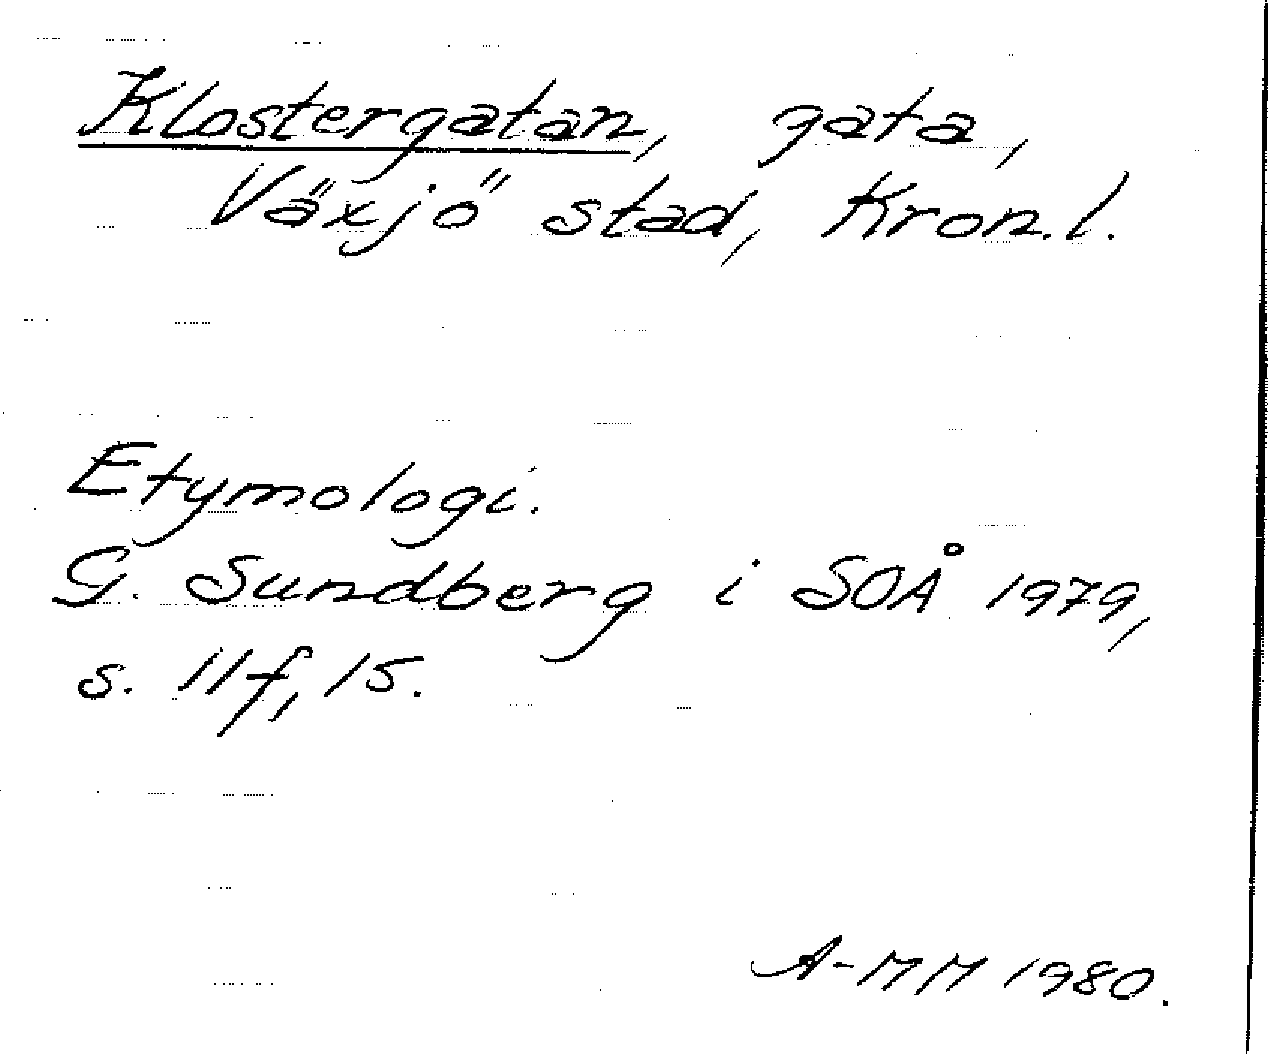 Klostergatan, gata,
Växjö stad, Kron.l.
Etymologi.
G. Sundberg i SOÅ 1979,
s. 11f, 15.
A-MM 1980.